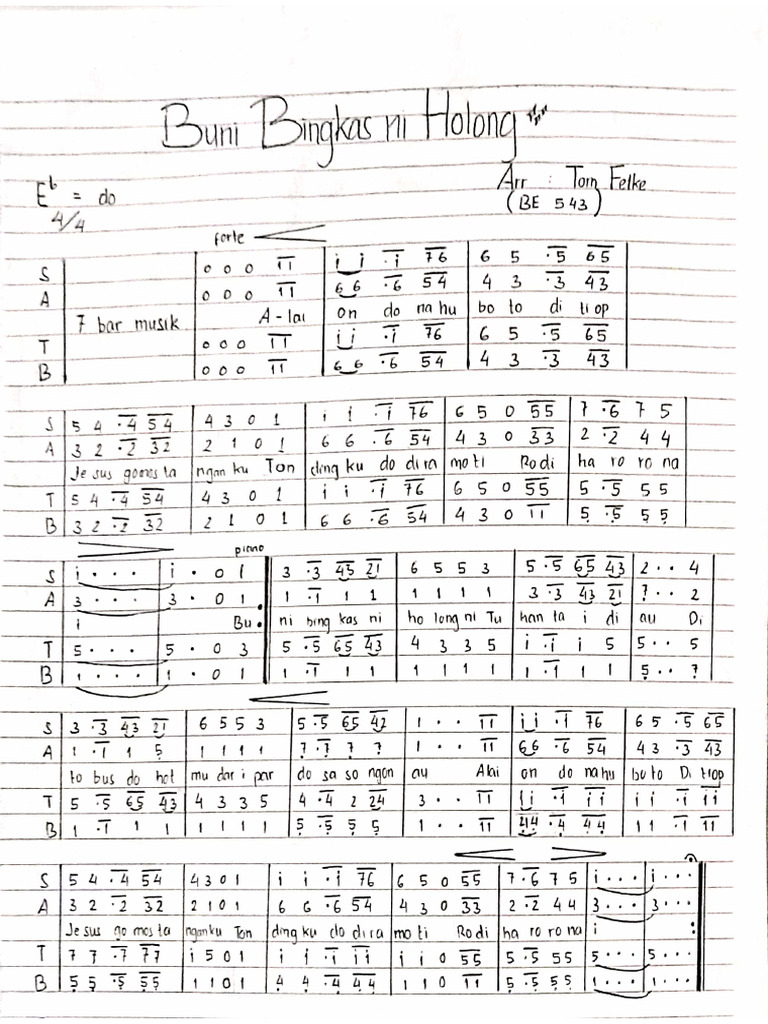 Buni Bingkas ni Holong
Arr : Tom Felke
(BE 543)
E♭ = do
4/4
forte
S | | 0 0 0 1̅1̅ | i i .̅i̅ 7̅6̅ | 6 5 .̅5̅ 6̅5̅ |
A | | 0 0 0 1̅1̅ | 6 6 .̅6̅ 5̅4̅ | 4 3 .̅3̅ 4̅3̅ |
7 bar musik A-lai on do na hu bo to di tiop
T | | 0 0 0 1̅1̅ | i i .̅i̅ 7̅6̅ | 6 5 .̅5̅ 6̅5̅ |
B | | 0 0 0 1̅1̅ | 6 6 .̅6̅ 5̅4̅ | 4 3 .̅3̅ 4̅3̅ |
S | 5 4 .̅4̅ 5̅4̅ | 4 3 0 1 | i i .̅i̅ 7̅6̅ | 6 5 0 5̅5̅ | 7 .̅6̅ 7 5 |
A | 3 2 .̅2̅ 3̅2̅ | 2 1 0 1 | 6 6 .̅6̅ 5̅4̅ | 4 3 0 3̅3̅ | 2 .̅2̅ 4 4 |
Je sus gomos ta ngan ku Ton ding ku do di ra mo ti Ro di ha ro ro na
T | 5 4 .̅4̅ 5̅4̅ | 4 3 0 1 | i i .̅i̅ 7̅6̅ | 6 5 0 5̅5̅ | 5 .̅5̅ 5 5 |
B | 3 2 .̅2̅ 3̅2̅ | 2 1 0 1 | 6 6 .̅6̅ 5̅4̅ | 4 3 0 1̅1̅ | 5̣ .̅5̣̅ 5̣ 5̣ |
piano
S | i . . . | i . 0 1 | 3 .̅3̅ 4̅3̅ 2̅1̅ | 6 5 5 3 | 5 .̅5̅ 6̅5̅ 4̅3̅ | 2 . . 4 |
A | 3 . . . | 3 . 0 1 | 1 .̅1̅ 1 1 | 1 1 1 1 | 3 .̅3̅ 4̅3̅ 2̅1̅ | 7̣ . . 2 |
i Bu ni bing kas ni ho long ni Tu han ta i di au Di
T | 5 . . . | 5 . 0 3 | 5 .̅5̅ 6̅5̅ 4̅3̅ | 4 3 3 5 | i .̅i̅ i 5 | 5 . . 5 |
B | 1 . . . | 1 . 0 1 | 1 .̅1̅ 1 1 | 1 1 1 1 | 1 .̅1̅ 1 1 | 5̣ . . 7̣ |
S | 3 .̅3̅ 4̅3̅ 2̅1̅ | 6 5 5 3 | 5 .̅5̅ 6̅5̅ 4̅2̅ | 1 . . 1̅1̅ | i i .̅i̅ 7̅6̅ | 6 5 .̅5̅ 6̅5̅ |
A | 1 .̅1̅ 1 5̣ | 1 1 1 1 | 7̣ .̅7̣̅ 7̣ 7̣ | 1 . . 1̅1̅ | 6 6 .̅6̅ 5̅4̅ | 4 3 .̅3̅ 4̅3̅ |
to bus do hot mu dar i par do sa so ngon au Alai on do na hu bo to Di tiop
T | 5 .̅5̅ 6̅5̅ 4̅3̅ | 4 3 3 5 | 4 .̅4̅ 2 2̅4̅ | 3 . . 1̅1̅ | i i .̅i̅ i̅i̅ | i i .̅i̅ i̅i̅ |
B | 1 .̅1̅ 1 1 | 1 1 1 1 | 5̣ .̅5̣̅ 5̣ 5̣ | 1 . . 1̅1̅ | 4̣ 4̣ .̅4̣̅ 4̣̅4̣̅ | 1 1 .̅1̅ 1̅1̅ |
S | 5 4 .̅4̅ 5̅4̅ | 4 3 0 1 | i i .̅i̅ 7̅6̅ | 6 5 0 5̅5̅ | 7 .̅6̅ 7 5 | i . . . | i . . . |
A | 3 2 .̅2̅ 3̅2̅ | 2 1 0 1 | 6 6 .̅6̅ 5̅4̅ | 4 3 0 3̅3̅ | 2 .̅2̅ 4 4 | 3 . . . | 3 . . . |
Je sus go mos ta nganku Ton ding ku do di ra mo ti Ro di ha ro ro na i
T | 7 7 .̅7̅ 7̅7̅ | i 5 0 1 | i i .̅i̅ i̅i̅ | i i 0 5̅5̅ | 5 .̅5̅ 5 5 | 5 . . . | 5 . . . |
B | 5̣ 5̣ .̅5̣̅ 5̣̅5̣̅ | 1 1 0 1 | 4̣ 4̣ .̅4̣̅ 4̣̅4̣̅ | 1 1 0 1̅1̅ | 5̣ .̅5̣̅ 5̣ 5̣ | 1 . . . | 1 . . . |